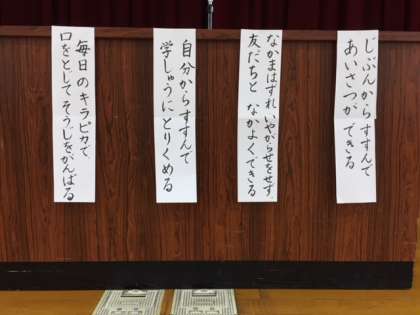 じぶんからすすんで
あいさつが できる
なかまはずれ いやがらせをせず
友だちと なかよくできる
自分からすすんで
学しゅうに とりくめる
毎日のキラピカで
口をとじて そうじをがんばる